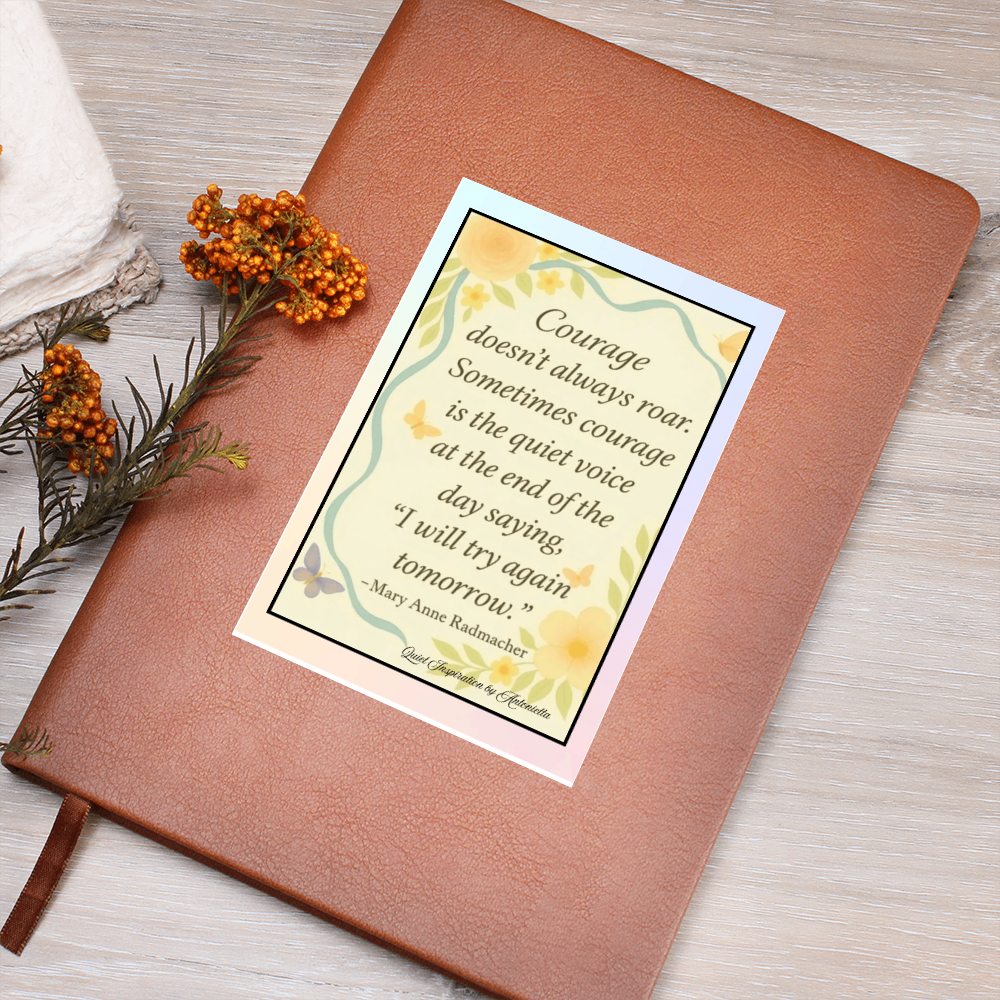 Courage
doesn't always roar.
Sometimes courage
is the quiet voice
at the end of the
day saying,
“I will try again
tomorrow.”
–Mary Anne Radmacher
Quiet Inspiration by Antonietta